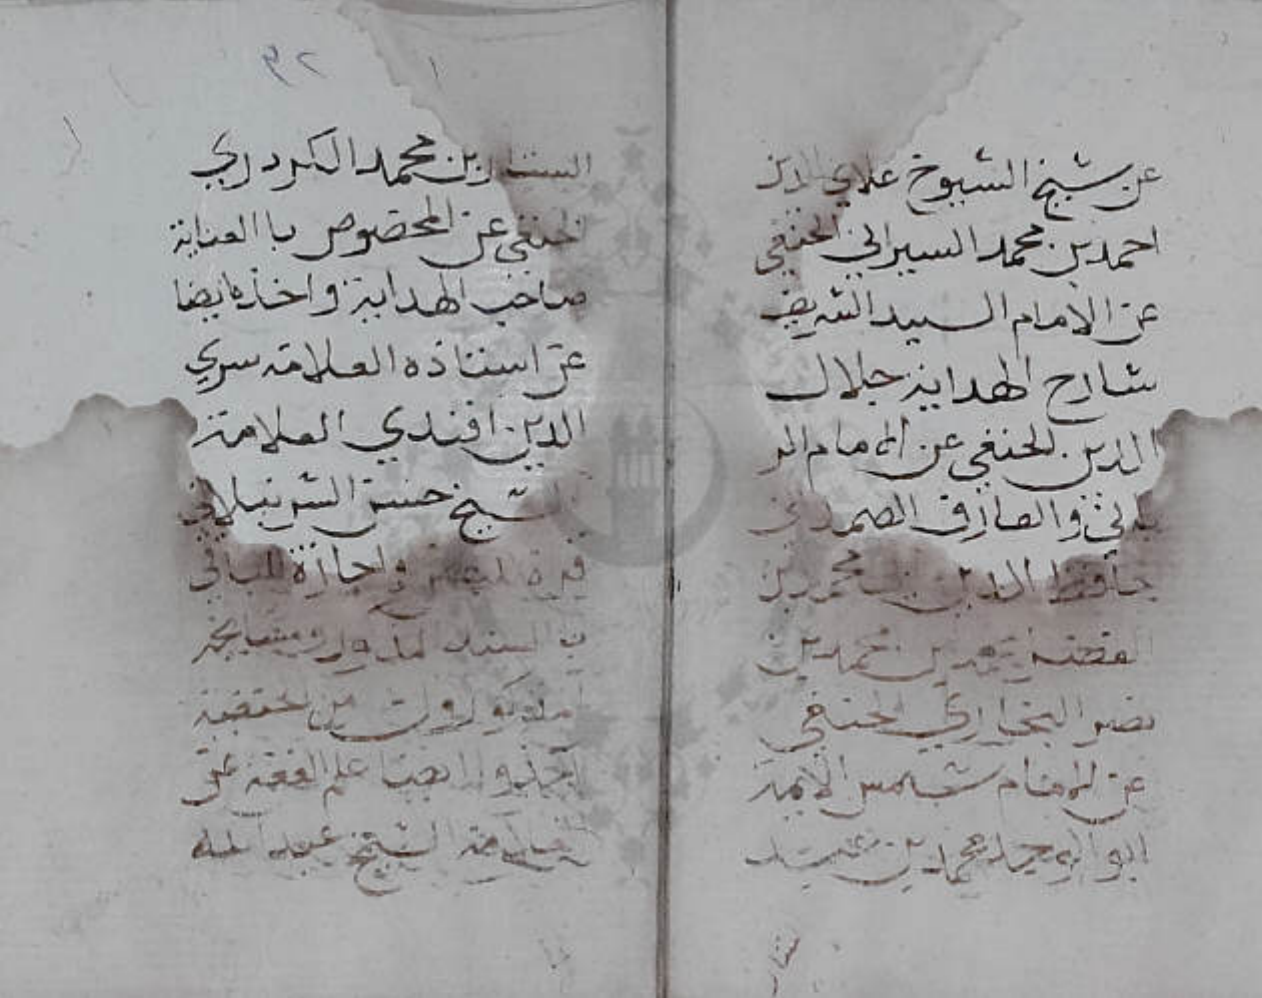 عن شيخ الشيوخ علاي الدين
احمد بن محمد السيرافي الحنفي
عن الامام السيد الشريف
شارح الهداية جلال
الدين الحنفي عن الامام الر
باني والعارف الصمداني
حافظ الدين محمد بن
محمد بن محمد بن
نصر البخاري الحنفي
عن الامام شمس الايمة
ابو الوجد محمد بن عبد
الستار بن محمد الكردري
الحنفي عن المخصوص باالعناية
صاحب الهداية واخذ ايضا
عن استاذه العلامة سري
الدين افندي العلامة
الشيخ حسن الشرنبلالي
قرة لبعض واجازة للباقي
بالسند
من الحنفية
ايضا علم الفقه عن
العلامة الشيخ عبد الله